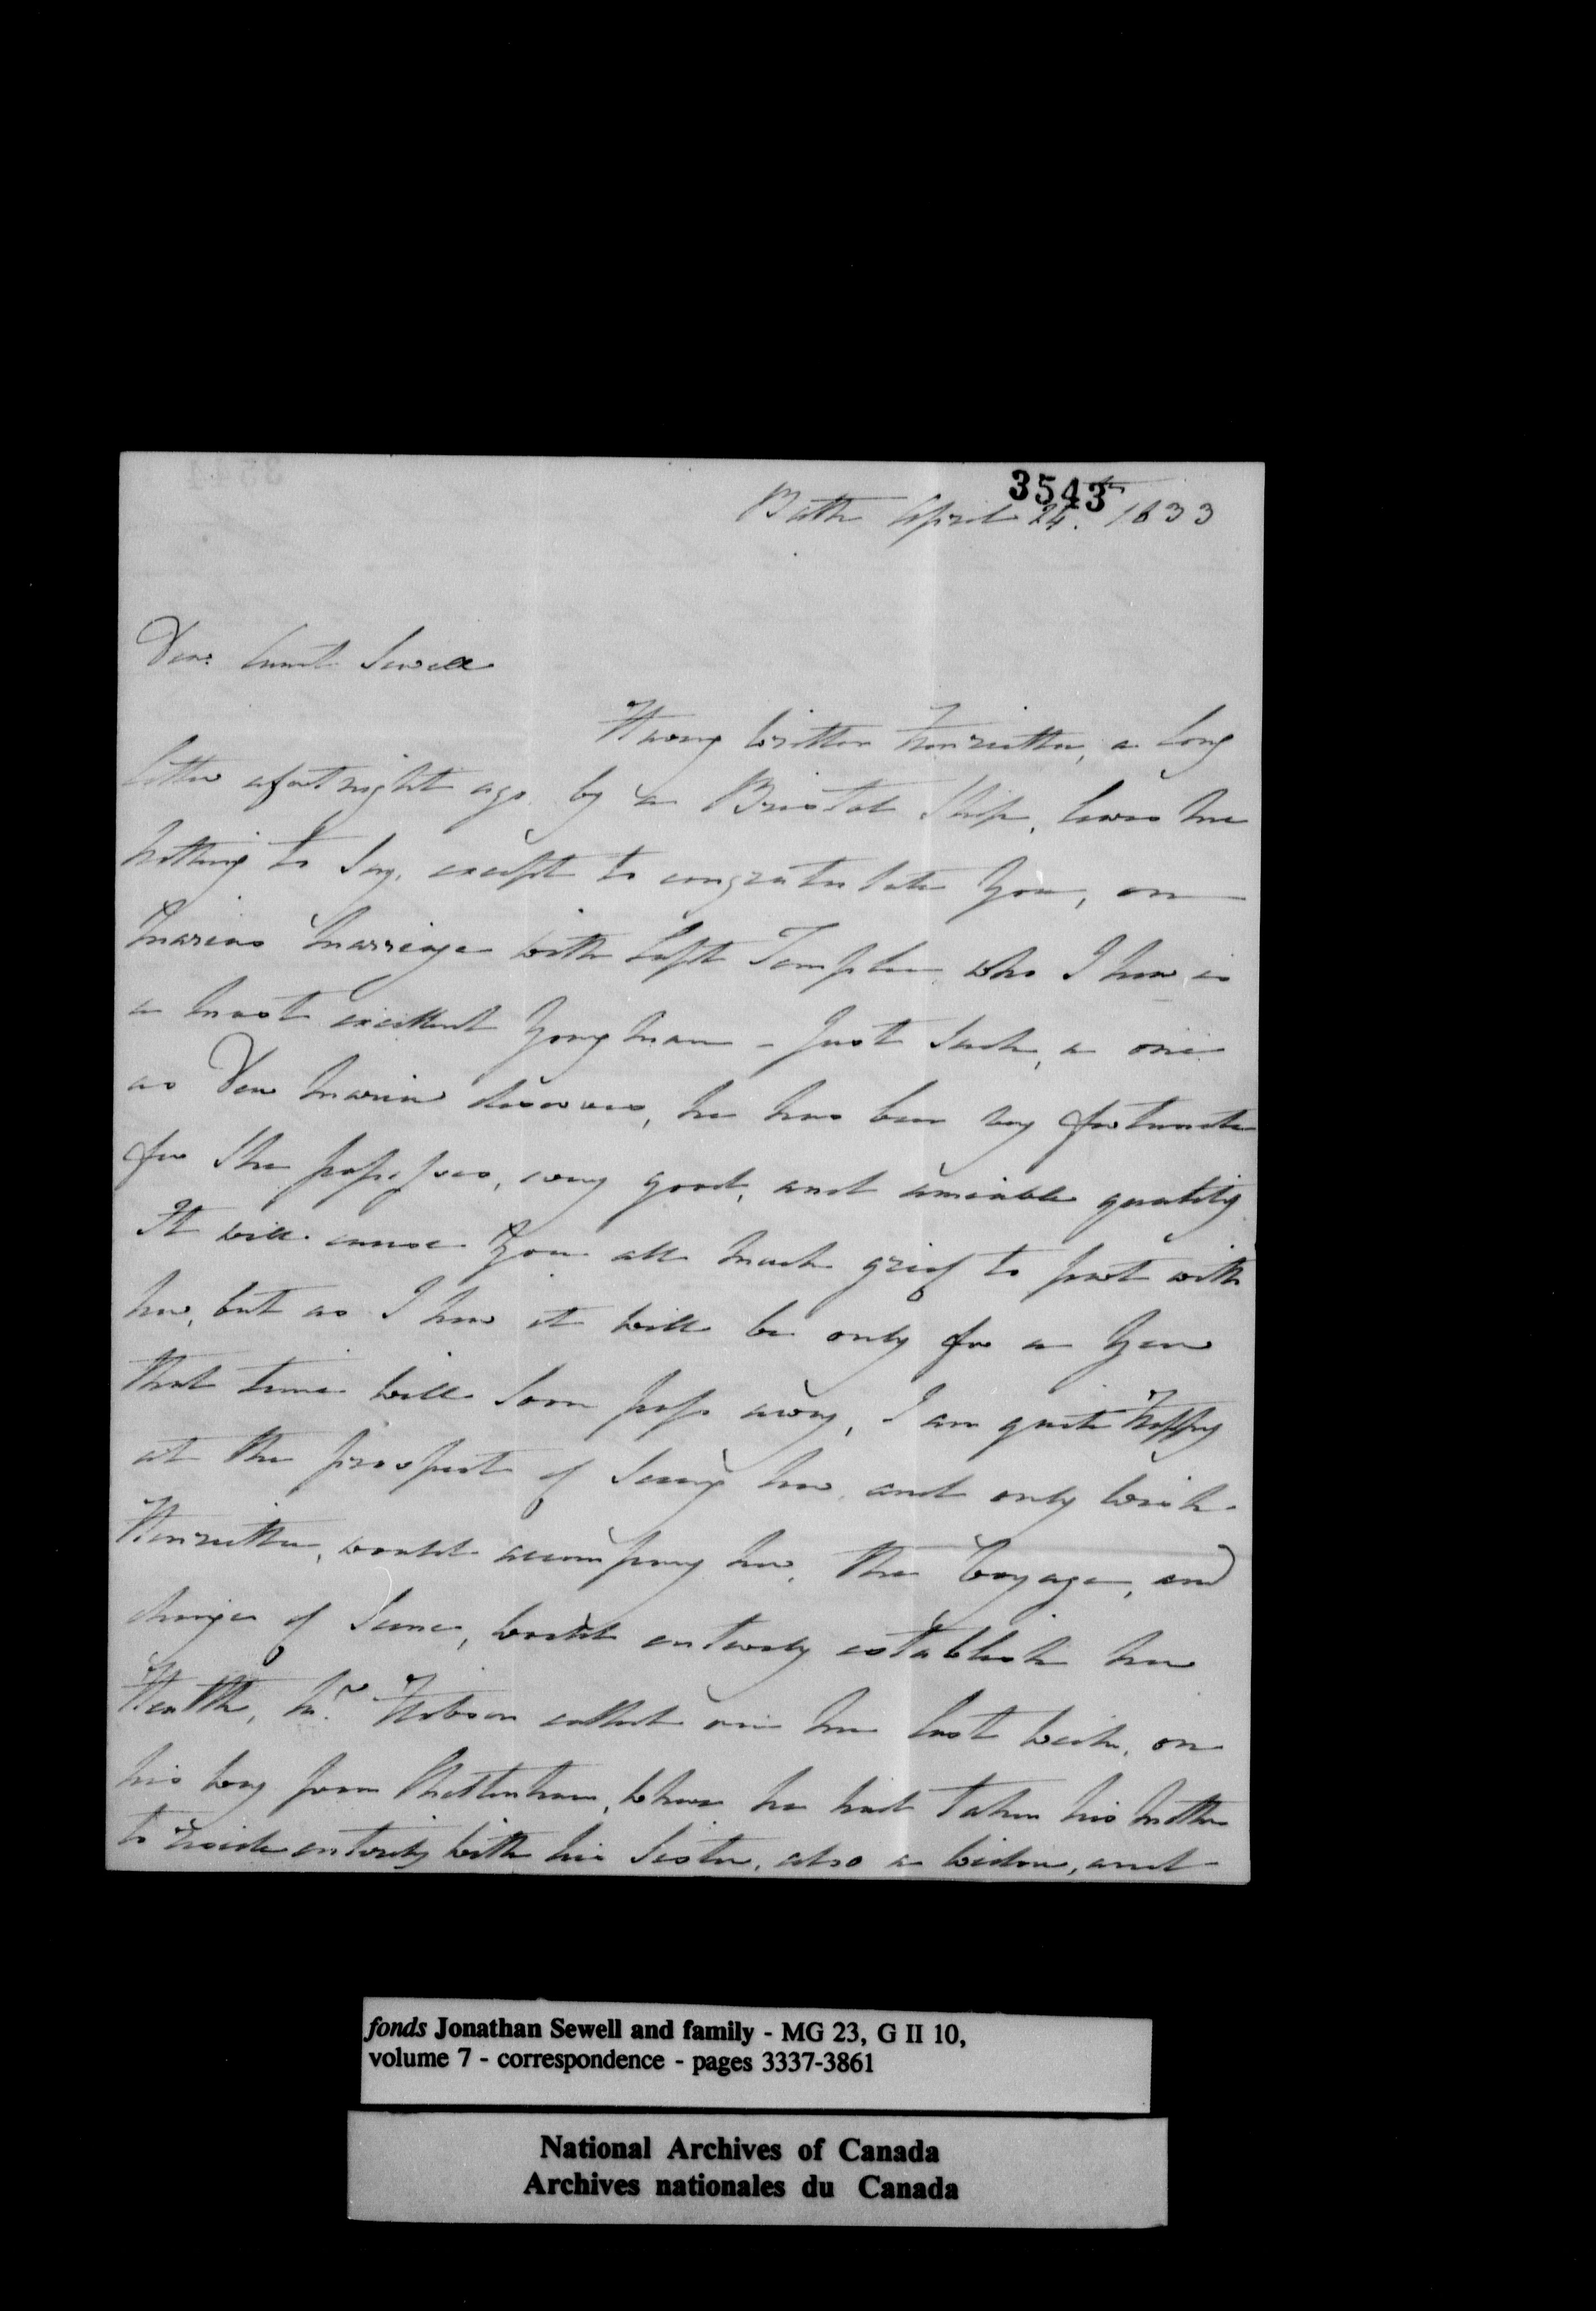 3543
Bath April 24th. 1833
Dear Aunt Sewell
Having written Henrietta, a long
letter a fortnight ago by a Bristol Ship, leaves me
nothing to say, except to congratulate you, on
Marias Marriage with Capt Temple who I hear is
a most excellent Young Man - Just Such, a one
as Dear Maria deserves, he has been very fortunate
for She possesses, every good, and amiable quality
It will cause You all much grief to part with
her, but as I hear it will be only for a Year
that time will soon pass away, I am quite Happy
at the prospect of Seeing her, and only wish
Henrietta, would accompany her, the Voyage, and
change of Scene, would entirely establish her
Health, Mr. Hobson called on me last week, on
his way from Cheltenham, where he had taken his Mother
to reside entirely with his Sister, also a widow, and
fonds Jonathan Sewell and family - MG 23, G II 10,
volume 7 - correspondence - pages 3337-3861
National Archives of Canada
Archives nationales du Canada